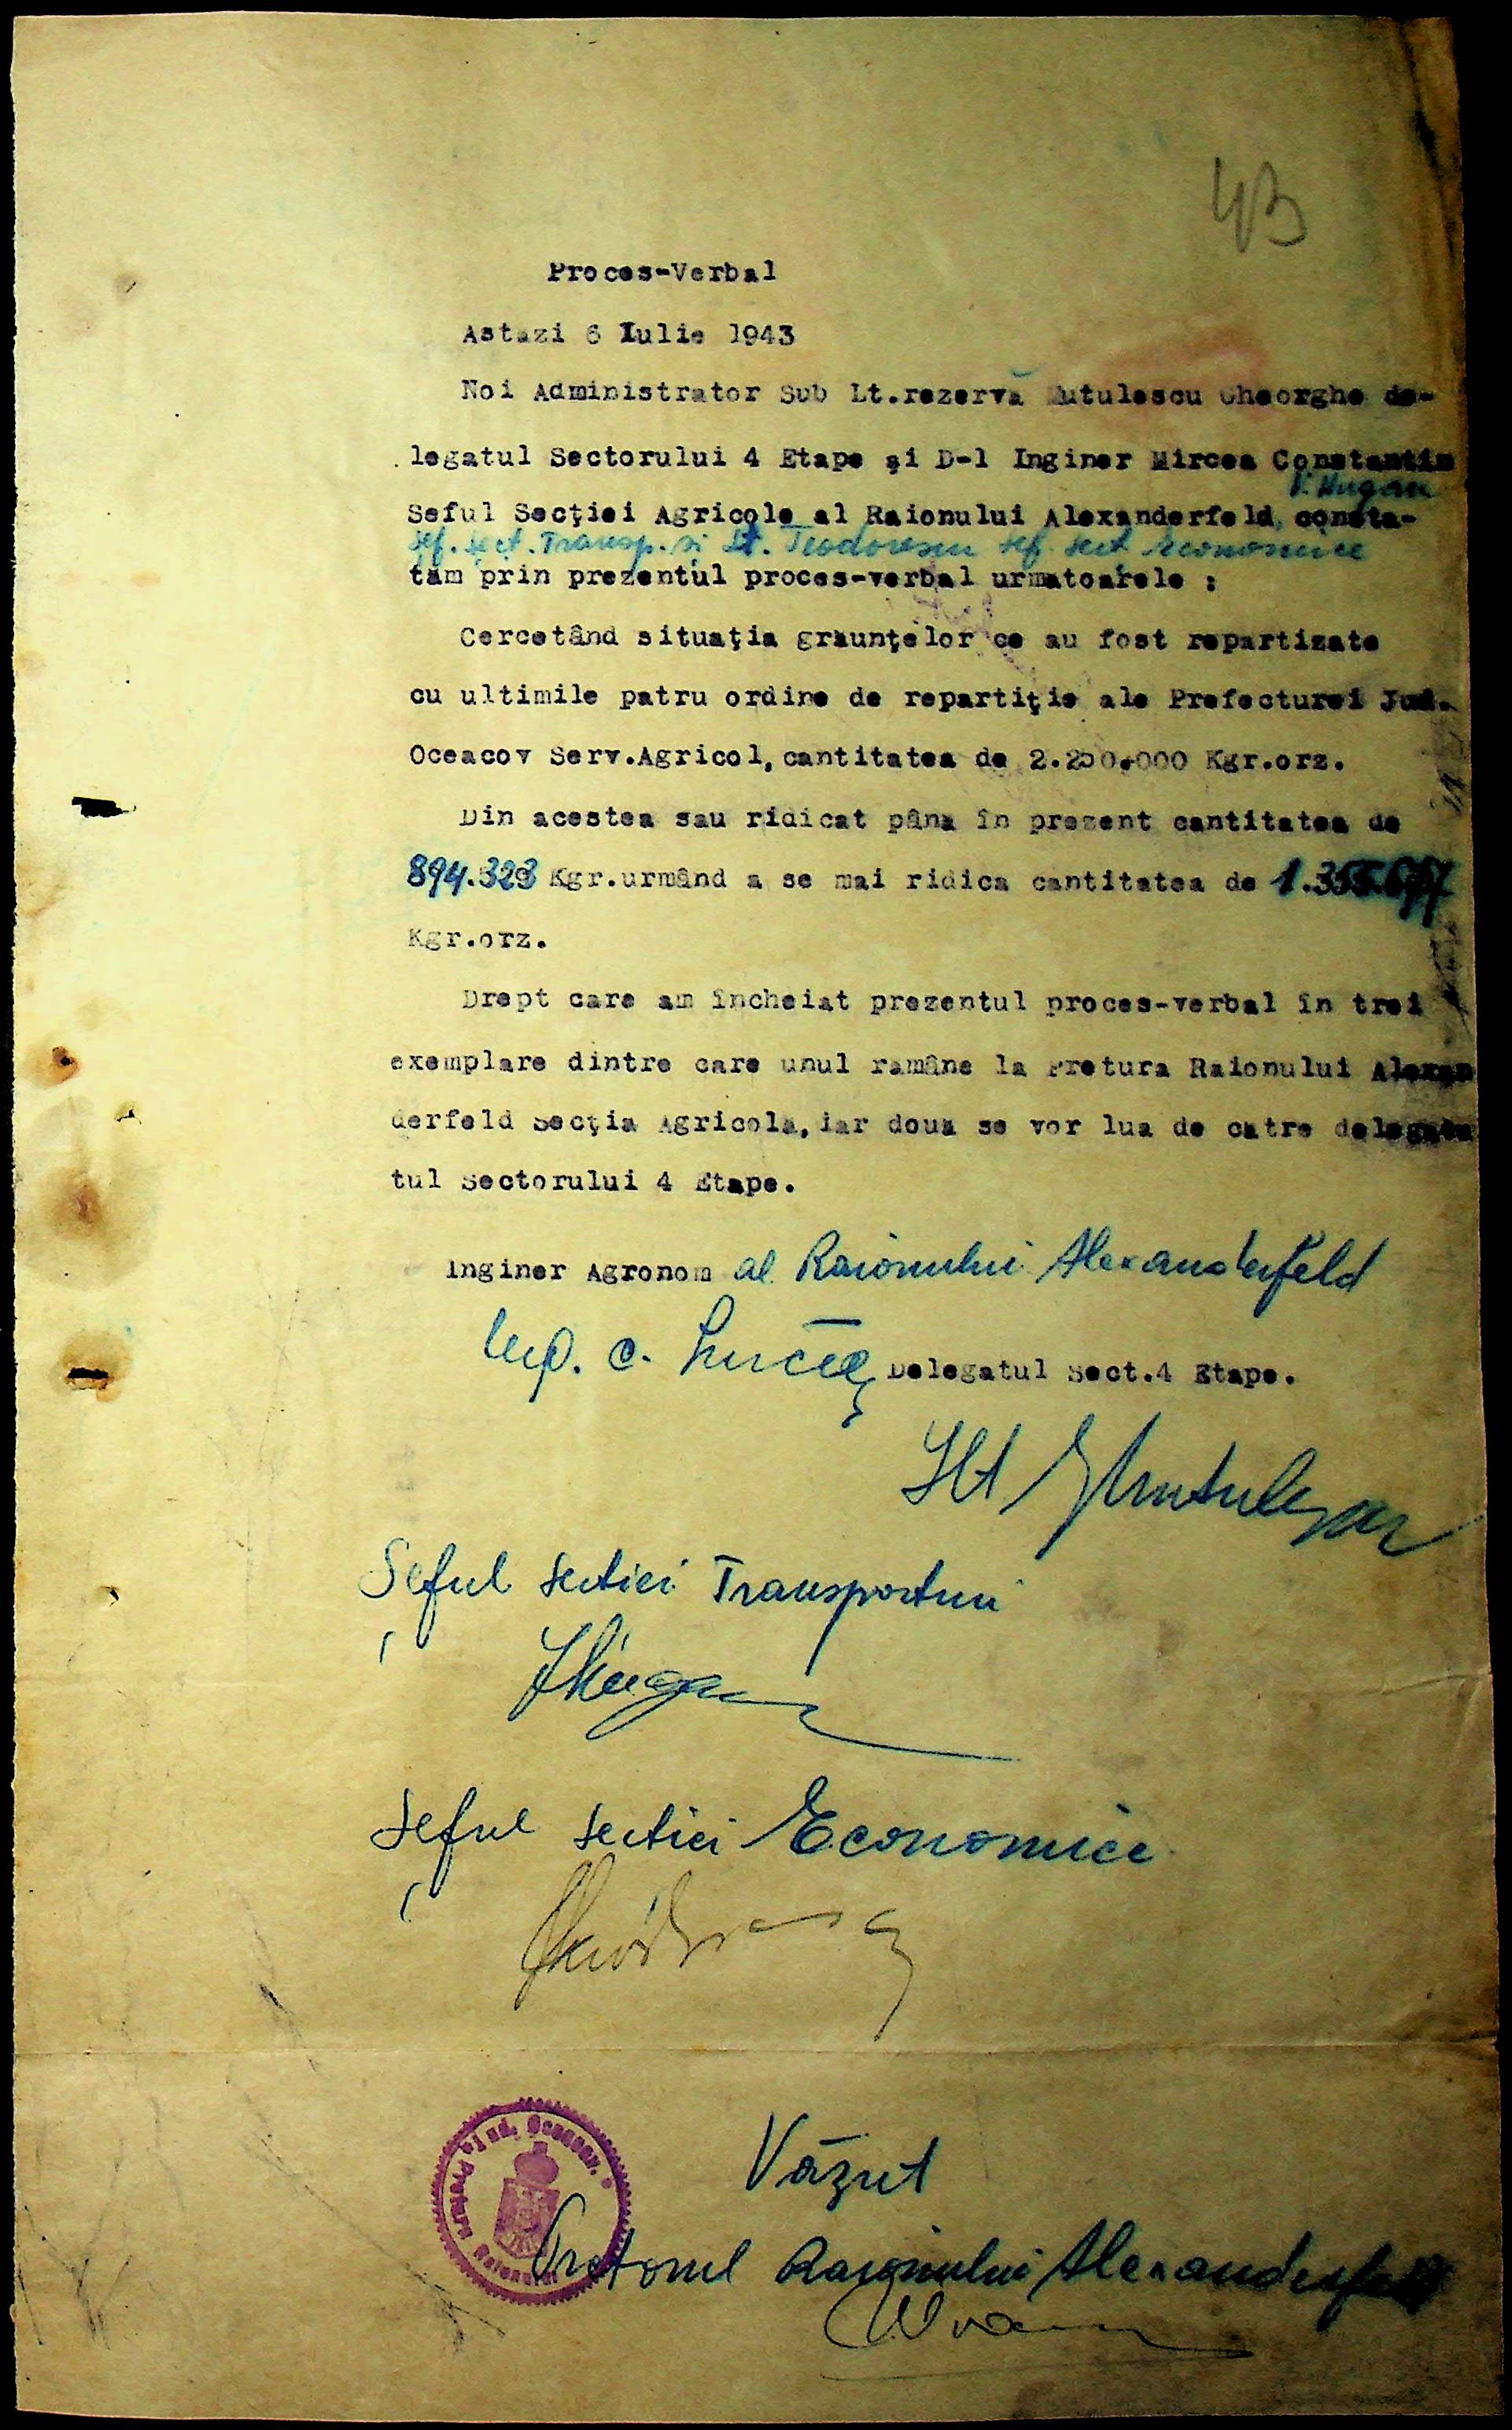 43
Proces-Verbal
Astazi 6 Iulie 1943
Noi Administrator Sub Lt.rezervă Mutulescu Gheorghe de-
legatul Sectorului 4 Etape şi D-l Inginer Mircea Constantin
V. Hugan
Seful Secţiei Agricole al Raionului Alexanderfeld, consta-
Şef. Sect. Transp. si Lt. Teodorescu sef. sect Economice
tăm prin prezentul proces-verbal urmatoarele :
Cercetând situaţia graunţelor ce au fost repartizate
cu ultimile patru ordine de repartiţie ale Prefecturei Jud.
Oceacov Serv.Agricol, cantitatea de 2.250.000 Kgr.orz.
Din acestea sau ridicat pâna în prezent cantitatea de
894.323 Kgr.urmând a se mai ridica cantitatea de 1.355.677
Kgr.orz.
Drept care am încheiat prezentul proces-verbal în trei
exemplare dintre care unul ramâne la Pretura Raionului Alexan
derfeld Secţia Agricola, iar doua se vor lua de catre delega
tul Sectorului 4 Etape.
Inginer Agronom al Raionului Alexanderfeld
Ing. C. Mircea
Delegatul Sect.4 Etape.
Slt GMutulescu
Şeful Sectiei Transporturi
Şeful Sectiei Economice
Pretura Jud. Oceacov.
Raionului
Văzut
Pretorul Raionului Alexanderfeld